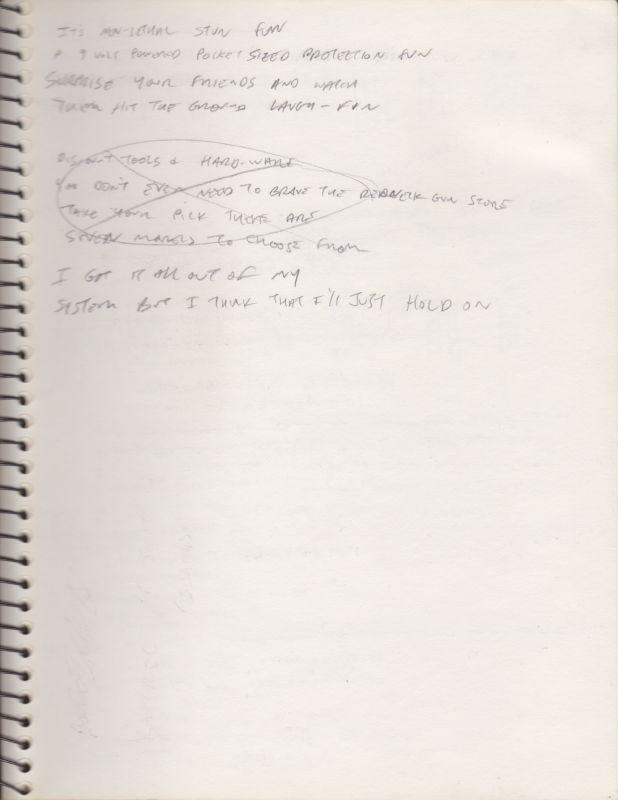 IT'S NON-LETHAL STUN FUN
A 9 VOLT POWERED POCKET SIZED PROTECTION FUN
SURPRISE YOUR FRIENDS AND WATCH
THEM HIT THE GROUND LAUGH-FUN
DISCOUNT TOOLS & HARD-WARE
YOU DON'T EVEN NEED TO BRAVE THE REDNECK GUN STORE
TAKE YOUR PICK THERE ARE
SEVEN MODELS TO CHOOSE FROM
I GOT IT ALL OUT OF MY
SYSTEM BUT I THINK THAT I'll JUST HOLD ON